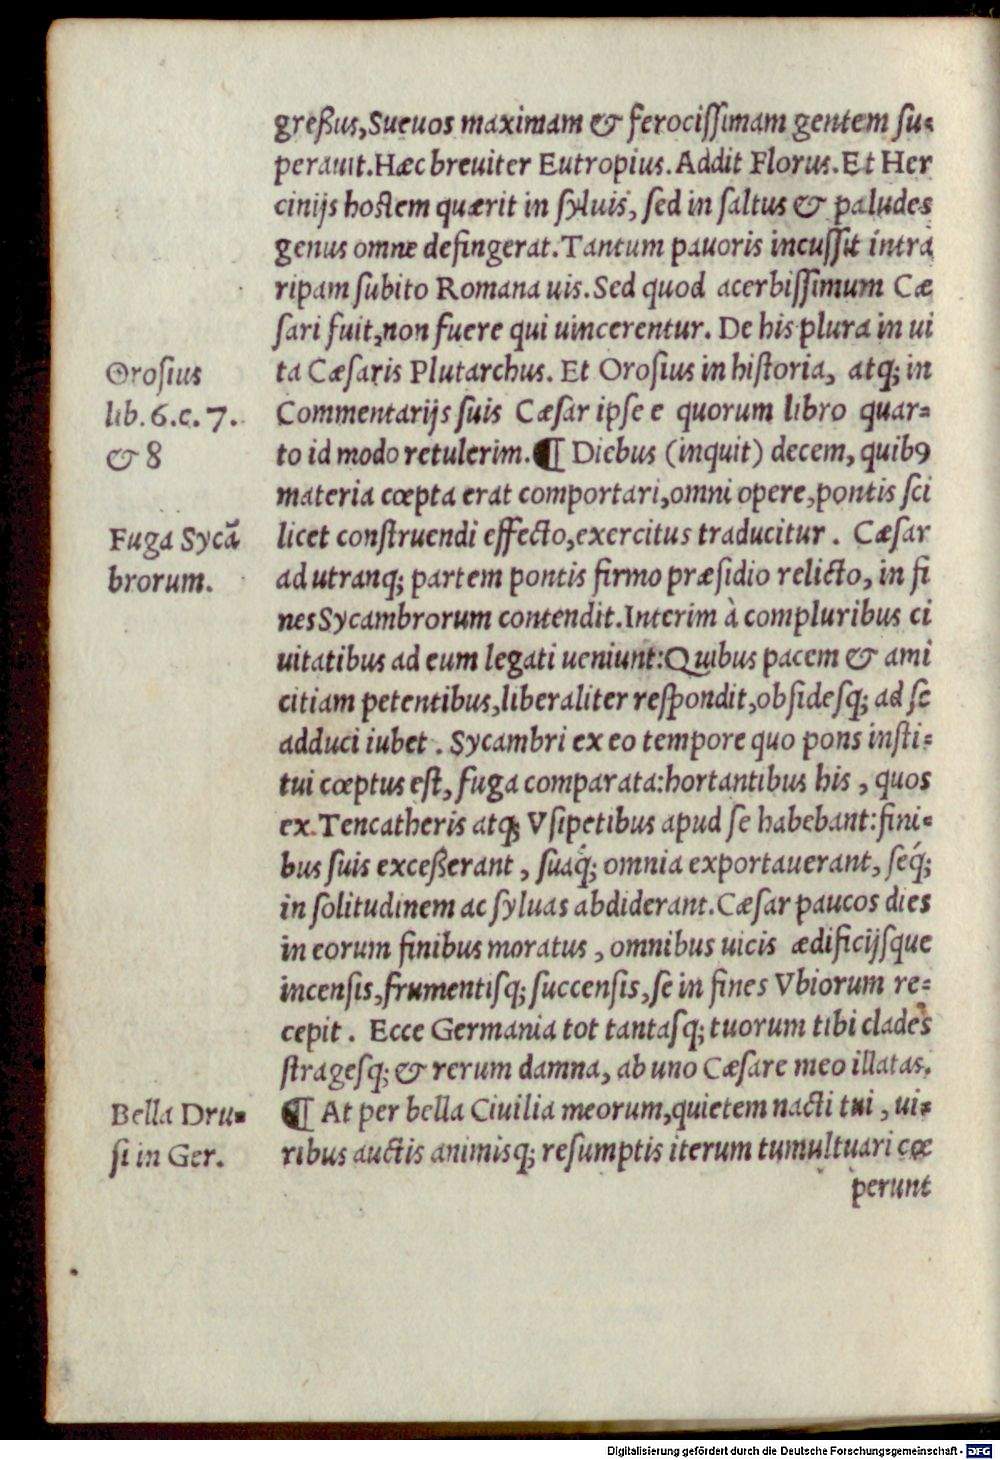 greßus,Sueuos maximam & ferocissimam gentem su-
perauit.Hæc breuiter Eutropius.Addit Florus.Et Her
cinijs hostem quærit in syluis, sed in saltus & paludes
genus omne defingerat.Tantum pauoris incussit intra
ripam subito Romana uis.Sed quod acerbissimum Cæ
sari fuit,non fuere qui uincerentur. De his plura in ui
Orosius
lib. 6.c. 7.
& 8
ta Cæsaris Plutarchus. Et Orosius in historia, atq; in
Commentarijs suis Cæsar ipse e quorum libro quar-
to id modo retulerim.¶ Diebus (inquit) decem, quib9
materia cœpta erat comportari,omni opere,pontis sci
Fuga Sycã
brorum.
licet construendi effecto,exercitus traducitur . Cæsar
ad utranq; partem pontis firmo præsidio relicto, in fi
nes Sycambrorum contendit.Interim à compluribus ci
uitatibus ad eum legati ueniunt:Quibus pacem & ami
citiam petentibus,liberaliter respondit,obsidesq; ad se
adduci iubet . Sycambri ex eo tempore quo pons insti-
tui cœptus est, fuga comparata:hortantibus his , quos
ex Tencatheris atq; Vsipetibus apud se habebant:fini-
bus suis exceßerant , suaq́; omnia exportauerant, seq́;
in solitudinem ac syluas abdiderant.Cæsar paucos dies
in eorum finibus moratus , omnibus uicis ædificijsque
incensis,frumentisq; succensis,se in fines Vbiorum re-
cepit . Ecce Germania tot tantasq; tuorum tibi clades
stragesq; & rerum damna, ab uno Cæsare meo illatas.
Bella Dru-
si in Ger.
¶ At per bella Ciuilia meorum,quietem nacti tui , ui-
ribus auctis animisq; resumptis iterum tumultuari cœ
perunt
Digitalisierung gefördert durch die Deutsche Forschungsgemeinschaft - DFG